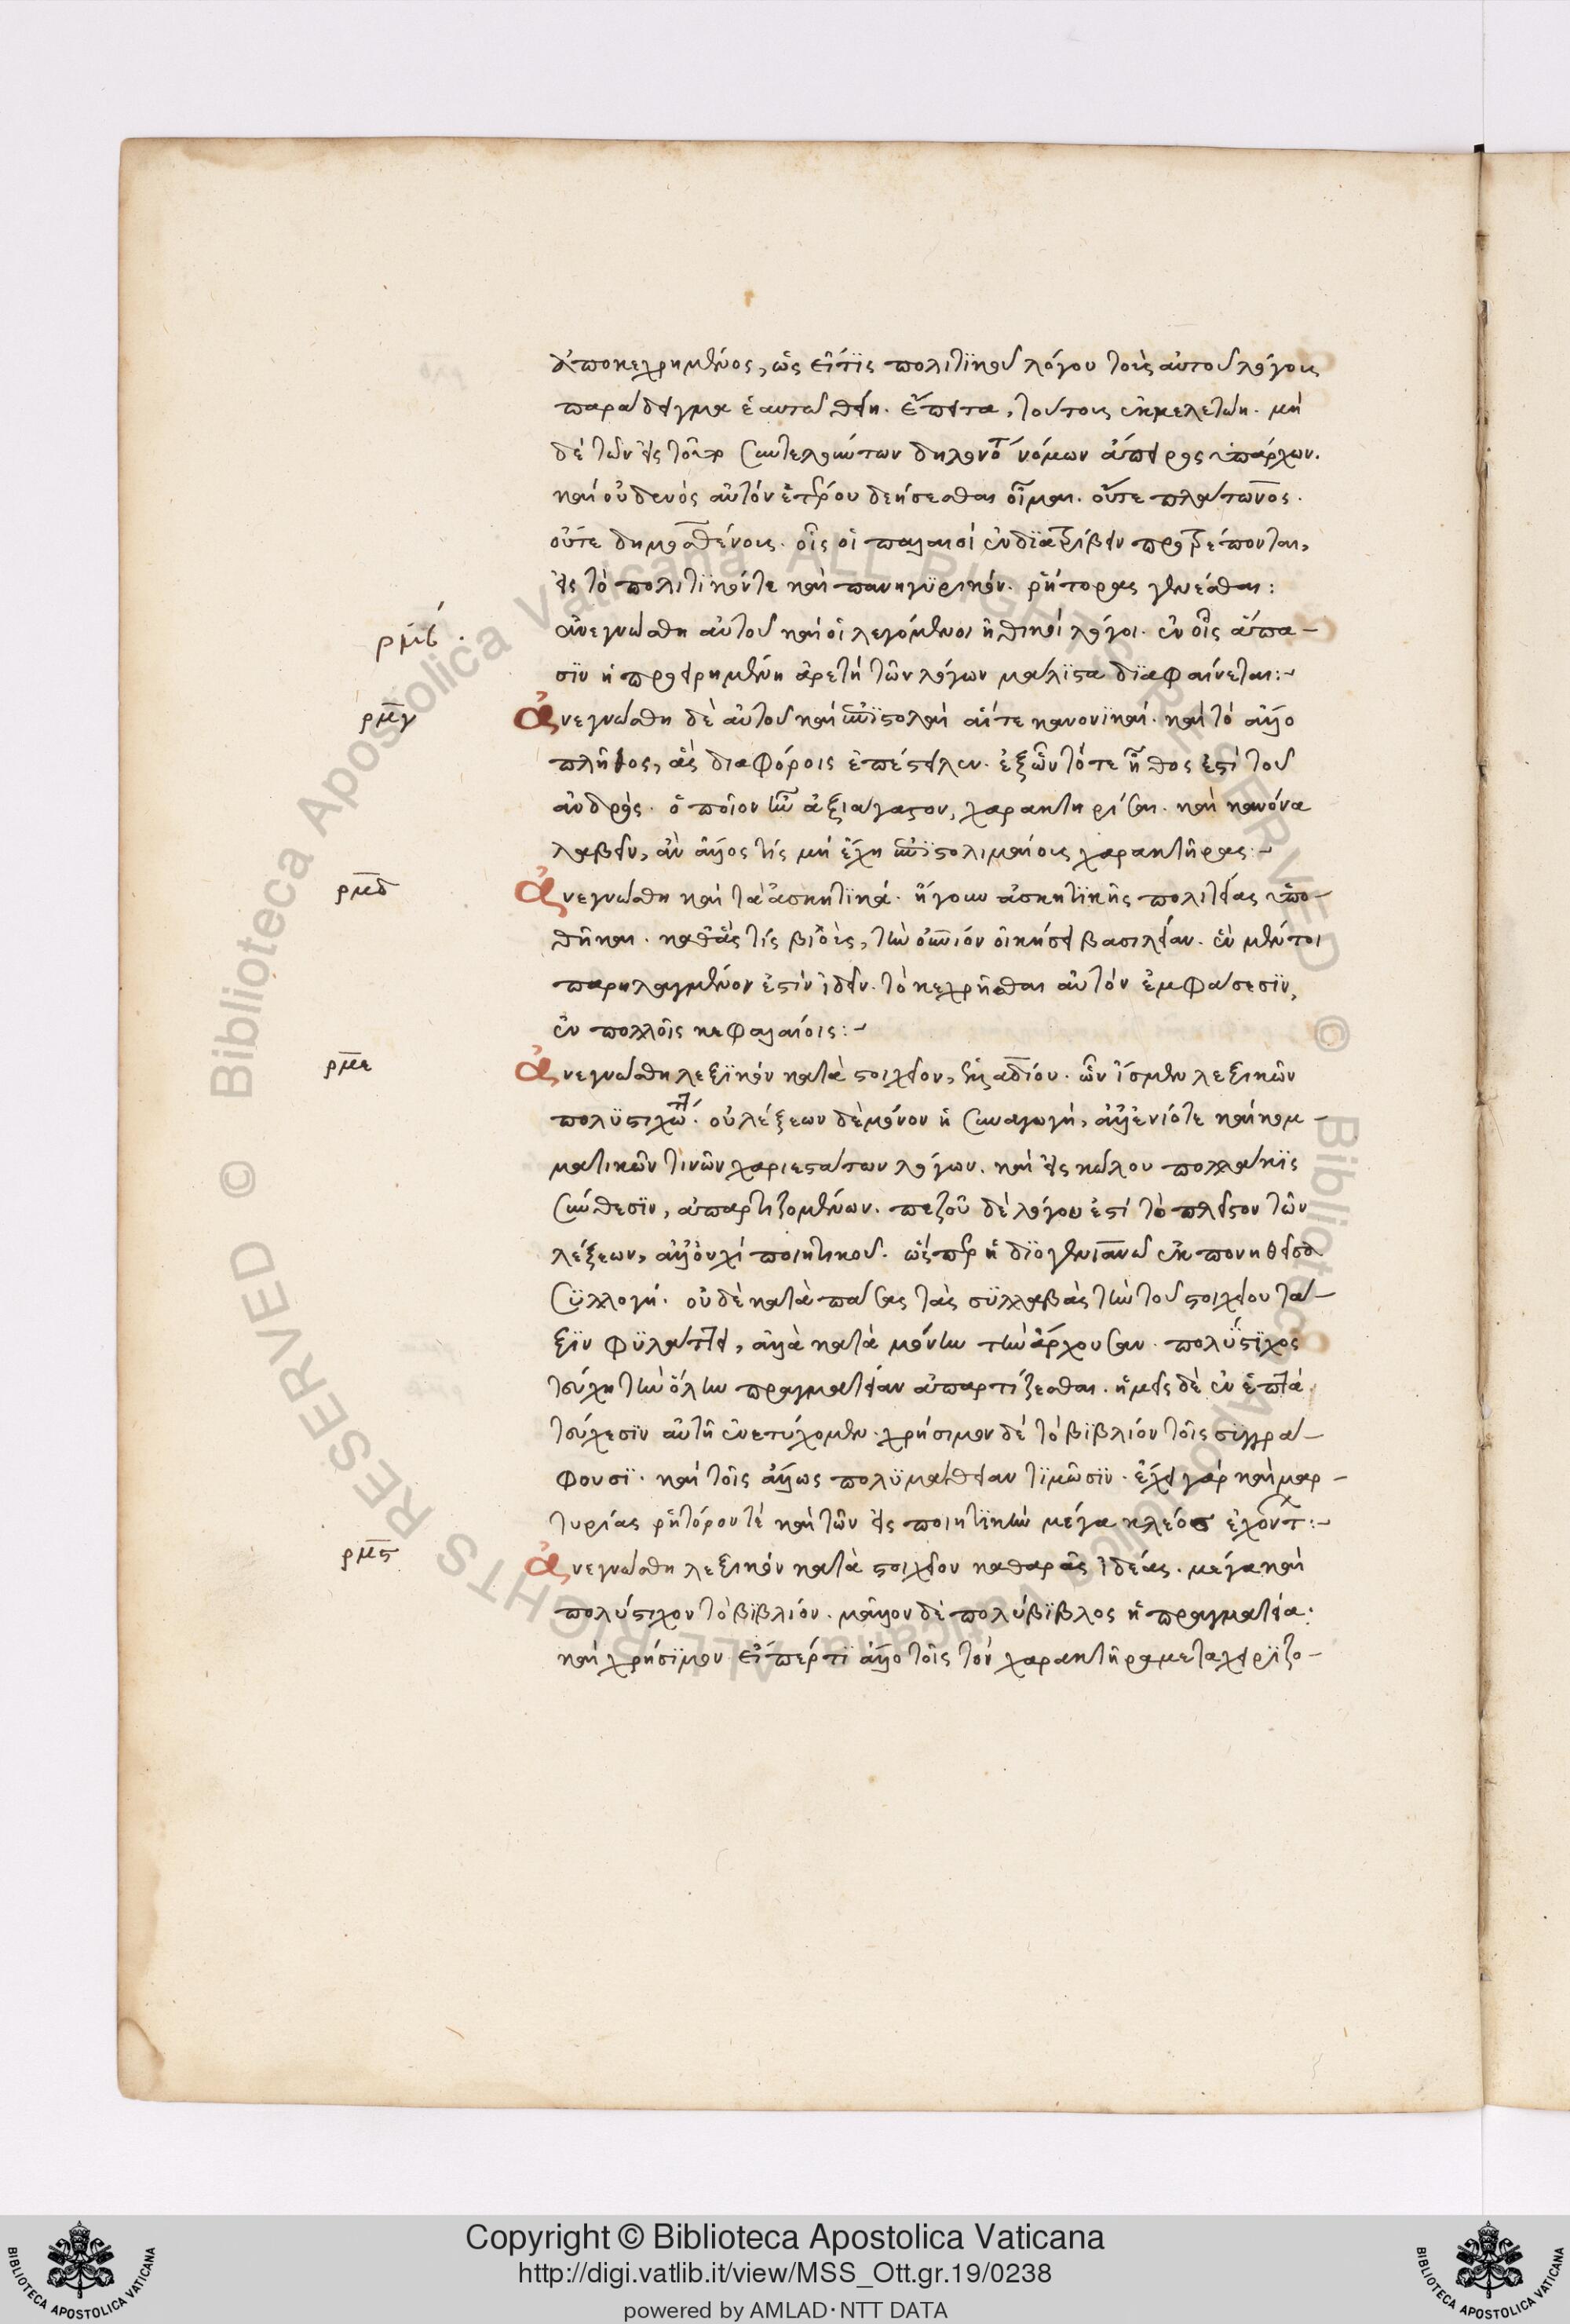 ἀποκεχρημένος, ὡς εἴ τϊς πολιτϊκοῦ λόγου τοὺς αὐτοῦ λόγους
παράδειγμα ἑαυτῶ θείη. ἔπειτα, τούτους ἐκμελετώη. μὴ
δὲ τῶν εἰς τοῦτο συντελούντων δηλονότι νόμων ἄπειρος ὑπάρχων.
καὶ οὐδενὸς αὐτὸν ἑτέρου δεήσεσθαι οἶμαι. οὔτε πλάτωνος.
οὔτε δημοσθένους. οἷς οἱ παλαιοὶ ἐνδϊατρίβειν προτρέπονται,
εἰς τὸ πολιτϊκόν τε καὶ πανηγϋρικόν. ῥήτορας γενέσθαι:
ρμβ
ἀνεγνώσθη αὐτοῦ καὶ οἱ λεγόμενοι ἠθικοὶ λόγοι. ἐν οἷς ἅπα-
σϊν ἡ προειρημένη ἀρετὴ τῶν λόγων μάλϊστα δϊαφαίνεται:-
ρμγ
ἀνεγνώσθη δὲ αὐτοῦ καὶ ἐπϊστολαὶ αἵ τε κανονϊκαί. καὶ τὸ ἄλλο
πλῆθος, ἃς διαφόροις ἐπέστειλεν. ἐξ ὧν τό τε ἦθος ἐστὶ τοῦ
ἀνδρός. ὁποῖον ἦν ἀξιάγαστον, χαρακτηρίσαι. καὶ κανόνα
λαβεῖν, ἂν ἄλλος τίς μὴ ἔχη ἐπϊστολιμαίους χαρακτῆρας:-
ρμδ
ἀνεγνώσθη καὶ τὰ ἀσκητϊκά. ἤγουν ἀσκητϊκῆς πολιτείας ὑπο-
θῆκαι. καθ' ἃς τίς βιοὺς, τὴν οὐράνιόν οἰκήσει βασιλείαν. ἐν μέντοι
παρηλαγμένον ἐστὶν ἰδεῖν. τὸ κεχρῆσθαι αὐτὸν ἐμφάσεσϊν,
ἐν πολλοῖς κεφαλαίοις:-
ρμε
ἀνεγνώσθη λεξϊκὸν κατὰ στοιχεῖον, ἑλλαδίου. ὧν ἴσμεν λεξικῶν
πολϋστιχώτατον. οὐ λέξεων δὲ μόνον ἡ συναγωγή, ἀλλ' ἐνίοτε καὶ κομ-
ματικῶν τινῶν χαριεστάτων λόγων. καὶ εἰς κώλου πολλάκϊς
σύνθεσϊν, ἀπαρτιζομένων. πεζοῦ δὲ λόγου ἐστὶ τὸ πλεῖστον τῶν
λέξεων, ἀλλ' οὐχὶ ποιητικοῦ. ὥσπερ ἡ δϊογενιανῶ ἐκπονηθεῖσα
σϋλλογή. οὐδὲ κατὰ πάσας τὰς σϋλλαβὰς τὴν τοῦ στοιχείου τά-
ξϊν φϋλάττει, ἀλλὰ κατὰ μόνην τὴν ἄρχουσαν. πολύστϊχος
τεύχη τὴν ὅλην πραγματείαν ἀπαρτίζεσθαι. ἡμεῖς δὲ ἐν ἑπτὰ
τεύχεσϊν αὐτῆ ἐνετύχομεν. χρήσιμον δὲ τὸ βϊβλίον τοῖς συγγρά-
φουσϊ. καὶ τοῖς ἄλλως πολϋμάθειαν τϊμῶσϊν. ἔχει γὰρ καὶ μαρ-
τυρίας ῥητόρον τὲ καὶ τῶν εἰς ποιητϊκὴν μέγα κλέος ἐχόντων:-
ρμς
ἀνεγνώσθη λεξικὸν κατὰ στοιχεῖον καθαρᾶς ἰδέας. μέγα καὶ
πολύστιχον τὸ βϊβλίον. μᾶλλον δὲ πολύβϊβλος ἡ πραγματεία:
καὶ χρήσϊμον εἴπέρ τϊ ἄλλο τοῖς τὸν χαρακτῆρα μεταχειρϊζο-
Copyright © Biblioteca Apostolica Vaticana
http://digi.vatlib.it/view/MSS_Ott.gr.19/0238
powered by AMLAD·NTT DATA
BIBLIOTECA APOSTOLICA VATICANA
BIBLIOTECA APOSTOLICA VATICANA
© Biblioteca Apostolica Vaticana ALL RIGHTS RESERVED
© Biblioteca Apostolica Vaticana ALL RIGHTS RESERVED